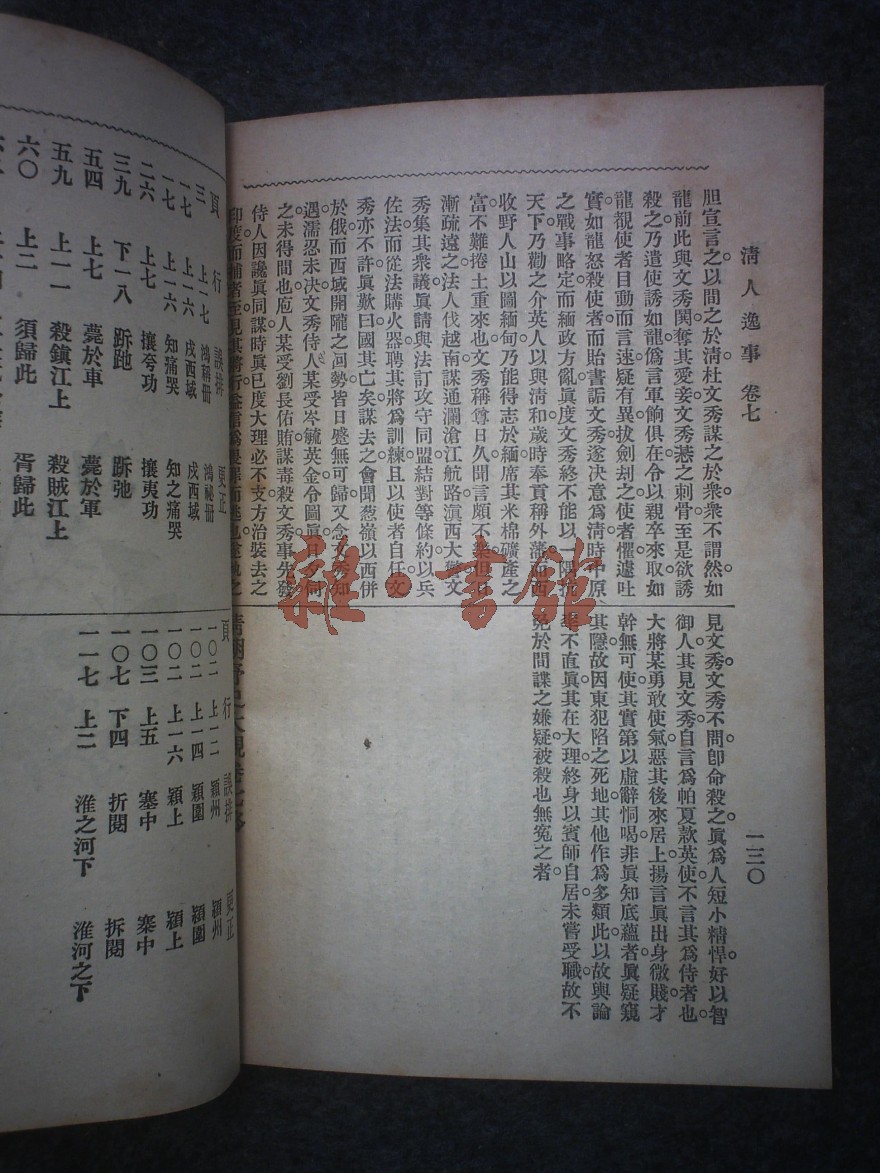 清人逸事 卷七
一三〇
胆宣言之以間之於清杜文秀謀之於衆衆不謂然如
龍前此與文秀鬨奪其愛妾文秀恭之刺骨至是欲誘
殺之乃遣使誘如龍僞言軍餉俱在令以親卒來取如
龍覩使者目動而言速疑有異拔劍刦之使者懼遽吐
實如龍怒殺使者而貽書詬文秀遂決意爲淸時中原
之戰事略定而緬政方亂眞度文秀終不能以一隅抗
天下乃勸之介英人以與淸和歲時奉貢稱外藩而西
收野人山以圖緬甸乃能得志於緬席其米棉礦產之
富不難捲土重來也文秀稱尊日久聞言頗不樂但日
漸疏遠之法人伐越南謀通瀾滄江航路滇西大驚文
秀集其衆議眞請與法訂攻守同盟結對等條約以兵
佐法而從法購火器聘其將爲訓練且以使者自任文
秀亦不許眞歎曰國其亡矣謀去之會聞葱嶺以西併
於俄而西域開隴之回勢皆日蹙無可歸又念文秀知
遇濡忍未決文秀侍人某受岑毓英金令圖眞日夕伺
之未得間也庖人某受劉長佑賄謀毒殺文秀事先發
侍人因讒眞同謀時眞已度大理必不支方治裝去之
印度而捕者至見其將行益信爲畏罪而逃也遂執之
見文秀文秀不問卽命殺之眞爲人短小精悍好以智
御人其見文秀自言爲帕夏款英使不言其爲侍者也
大將某勇敢使氣惡其後來居上揚言眞出身微賤才
幹無可使其實第以虛辭恫喝非眞知底蘊者眞疑窺
其隱故因東犯陷之死地其他作爲多類此以故輿論
率不直眞其在大理終身以賓師自居未嘗受職故不
免於間諜之嫌疑被殺也無冤之者
頁 行 誤排 更正
三 上一七 鴻稱册 鴻祕册
一七 上一六 戍西域 戌西域
一七 上一六 知痛哭 知之痛哭
二六 上七 攘夸功 攘夷功
三九 下一八 跅跑 跅弛
五四 上七 薨於車 薨於軍
五九 上一一 殺鎭江上 殺賊江上
六〇 上二 須歸此 胥歸此
頁 行 誤排 更正
一〇二 上一二 穎州 潁州
一〇二 上一四 穎圍 潁圍
一〇二 上一六 穎上 潁上
一〇三 上五 塞中 寨中
一〇七 下四 折閱 拆閱
一一七 上二 淮之河下 淮河之下
雜·書館